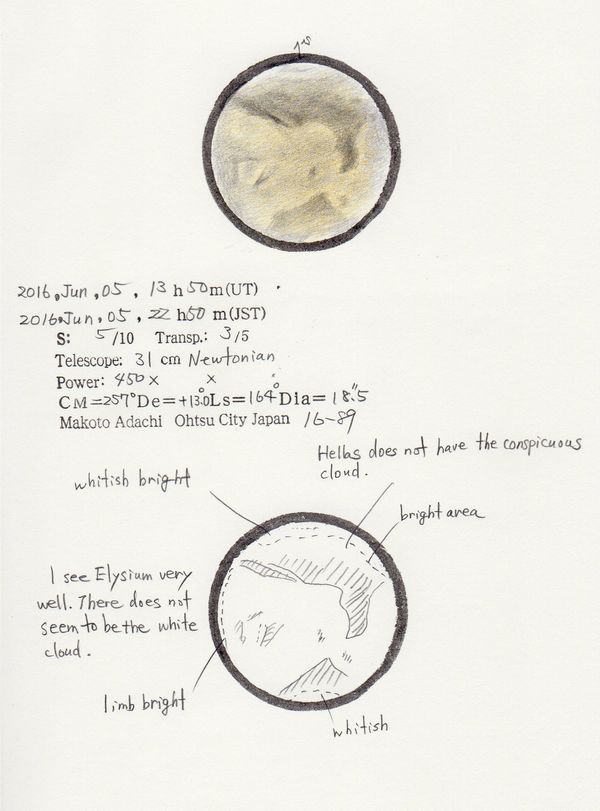 2016, Jun, 05, 13 h 50 m (UT)
2016, Jun, 05, 22 h 50 m (JST)
S: 5/10 Transp.: 3/5
Telescope: 31 cm Newtonian
Power: 450 × ×
CM=257° De=+13.0° Ls=164° Dia= 18."5
Makoto Adachi Ohtsu City Japan 16-89
Hellas does not have the conspicuous
cloud.
whitish bright
bright area
I see Elysium very
well. There does not
seem to be the white
cloud.
limb bright
whitish